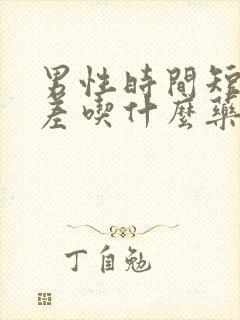 男性時間短
差喫什麼藥
丁自勉